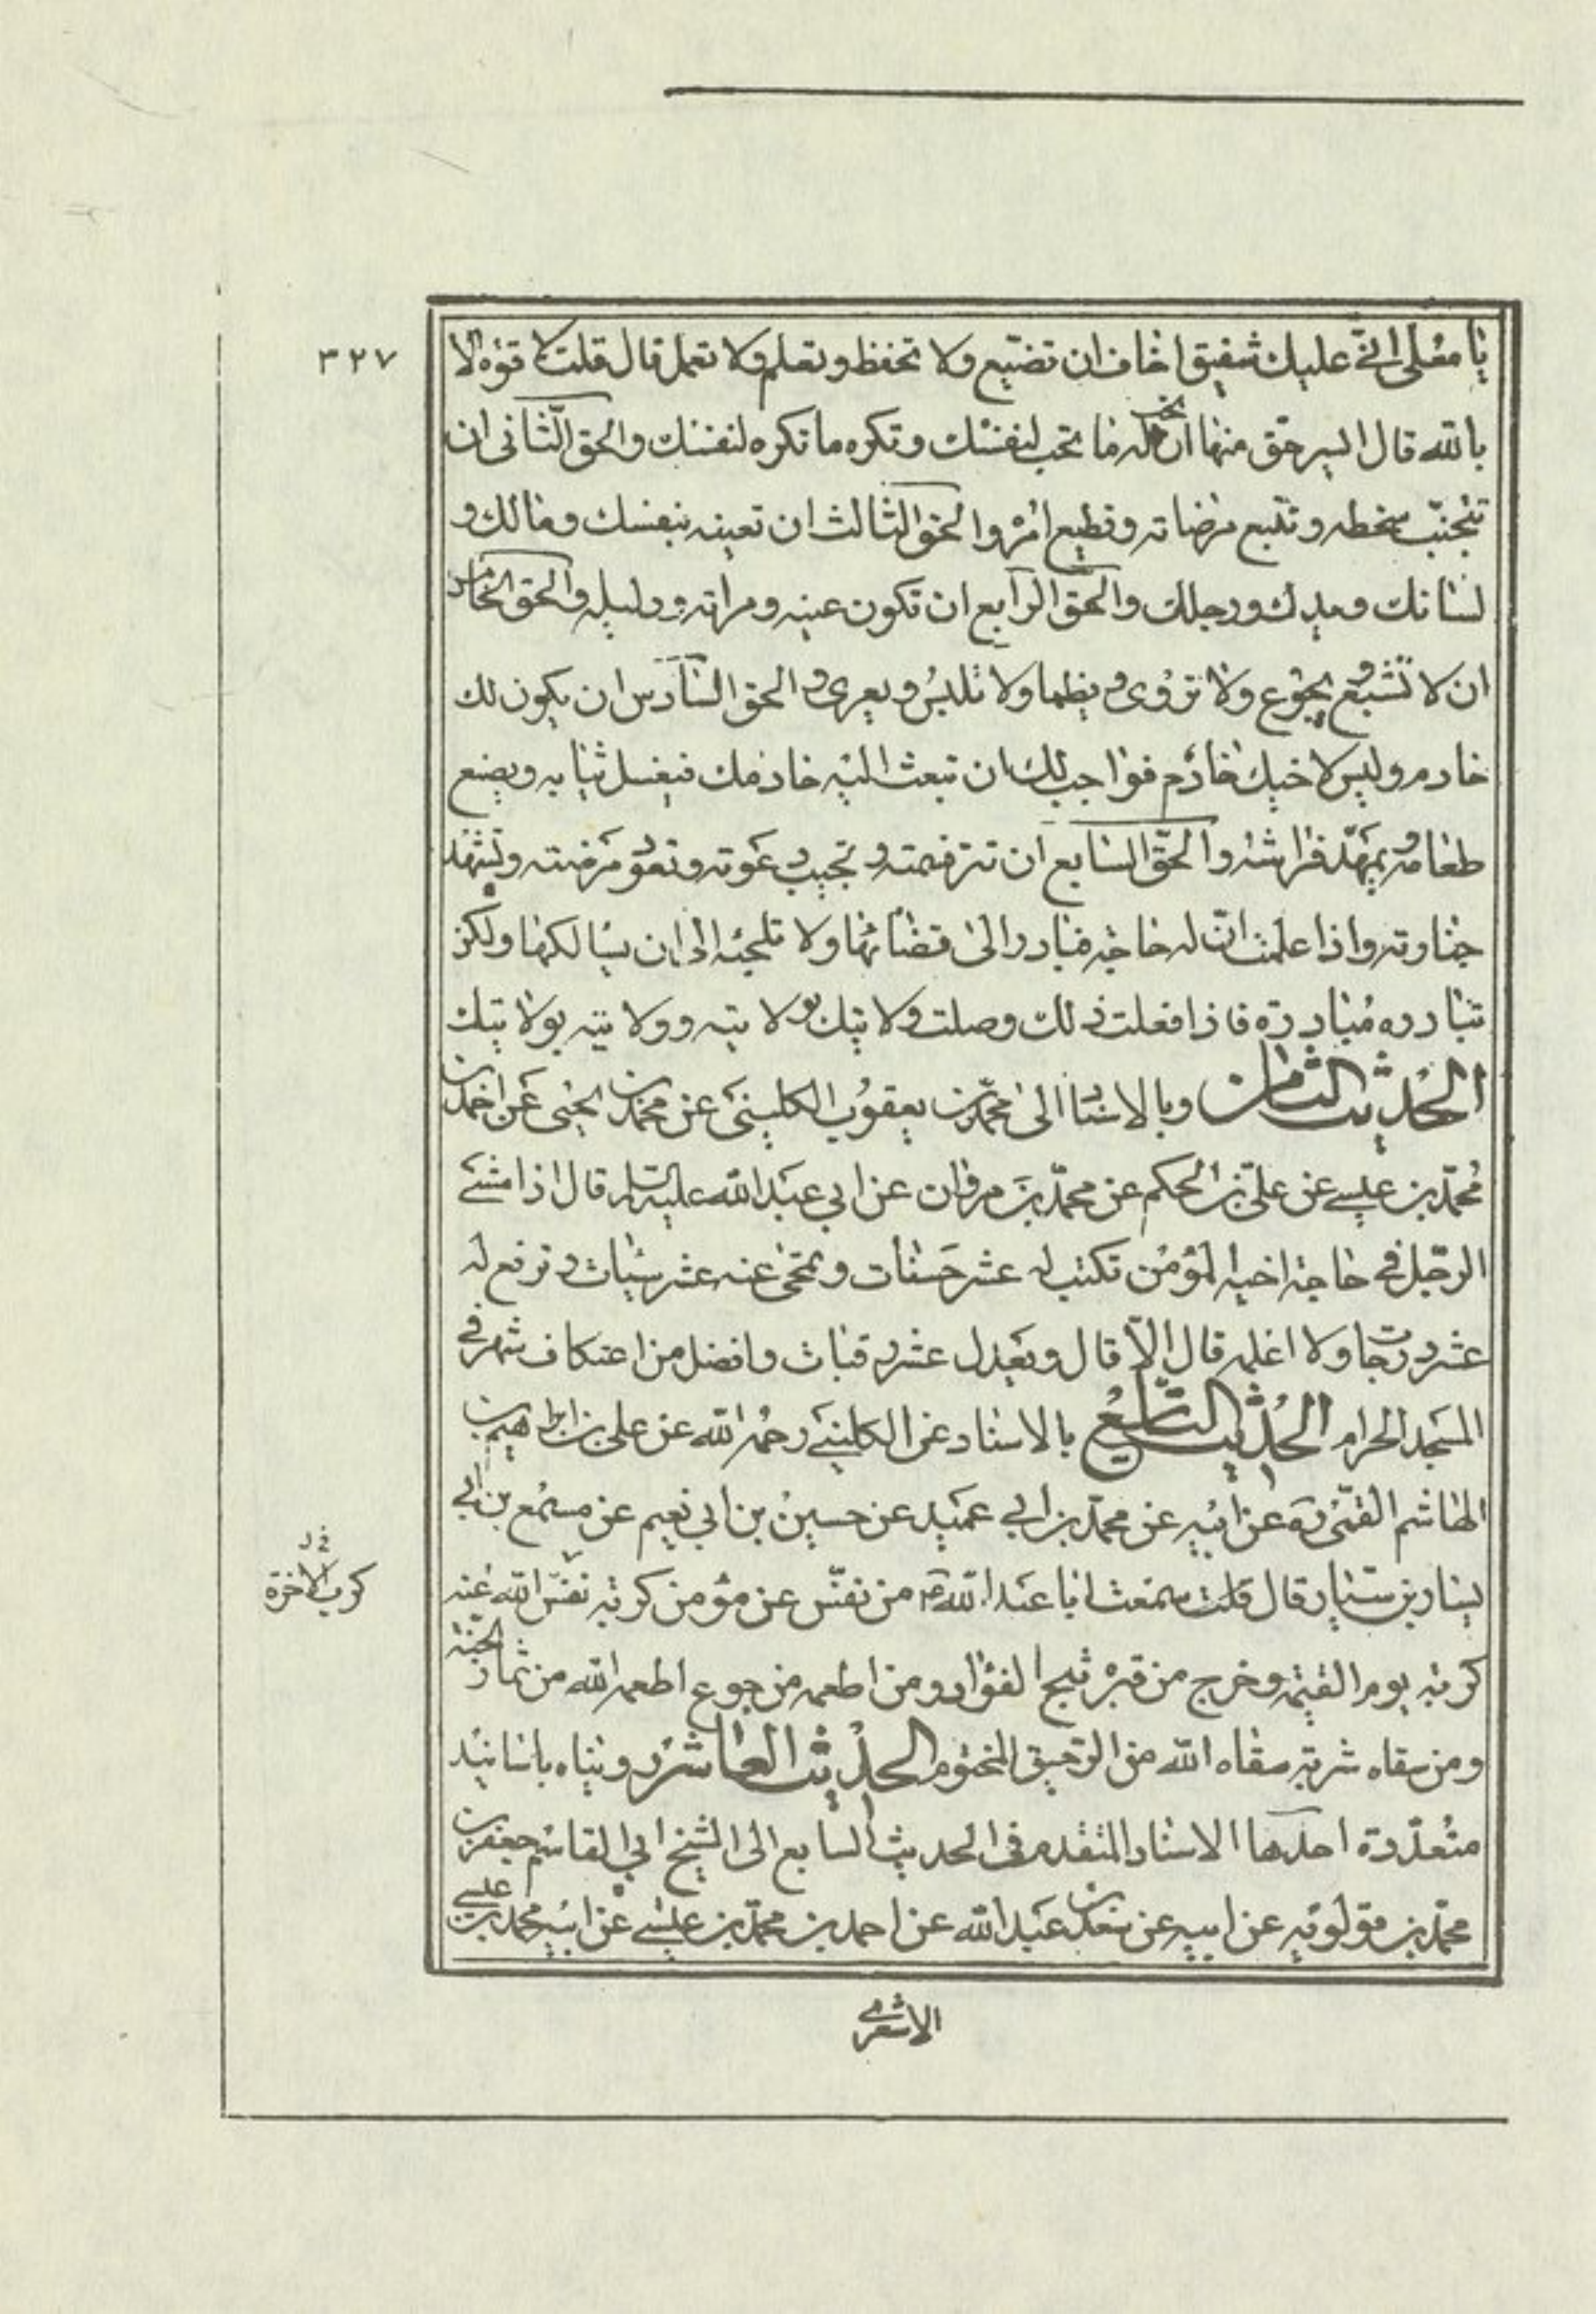 ٣٢٧
يا معلى انى عليك شفيق اخاف ان تضيع ولا تحفظ وتعلم ولا تعمل قال قلت لا قوة الا
بالله قال ايسر حق منها ان تحب له ما تحب لنفسك وتكره ما تكره لنفسك والحق الثانى ان
تجتنب سخطه وتتبع مرضاته وتطيع امره والحق الثالث ان تعينه بنفسك ومالك و
لسانك ويدك ورجلك والحق الرابع ان تكون عينه ومراته ودليله والحق الخامس
ان لا تشبع ويجوع ولا تروى ويظما ولا تلبس ويعرى والحق السادس ان يكون لك
خادم وليس لاخيك خادم فواجب لك ان تبعث اليه خادمك فيغسل ثيابه ويصنع
طعامه ويمهد فراشه والحق السابع ان تبر قسمته وتجيب دعوته وتعود مرضته وتشهد
جنازته واذا علمت ان له حاجة فبادر الى قضائها ولا تلجئه الى ان يسالكها ولكن
تبادره مبادرة فاذا فعلت ذلك وصلت ولايتك بولايته وولايته بولايتك
الحديث الثامن وبالاسناد الى محمد بن يعقوب الكلينى عن محمد بن يحيى عن احمد بن
محمد بن عيسى عن على بن الحكم عن محمد بن مروان عن ابي عبد الله عليه السلام قال اذا مشى
الرجل في حاجة اخيه المؤمن تكتب له عشر حسنات وتمحى عنه عشر سيئات وترفع له
عشر درجات ولا اعلمه قال الا قال ويعدل عشر رقبات وافضل من اعتكاف شهر في
المسجد الحرام الحديث التاسع بالاسناد عن الكليني رحمه الله عن على بن ابراهيم بن
الهاشم القمى ره عن ابيه عن محمد بن ابي عمير عن حسين بن ابي نعيم عن مسمع بن ابي
يسار بن سيار قال قلت سمعت ابا عبد الله ع من نفس عن مؤمن كربة نفس الله عنه
كرب الاخرة
كربة يوم القيمة وخرج من قبره ثلج الفؤاد ومن اطعمه من جوع اطعمه الله من ثمار الجنة
ومن سقاه شربة سقاه الله من الرحيق المختوم الحديث العاشر رويناه باسانيد
متعددة احدها الاسناد المتقدم في الحديث السابع الى الشيخ ابي القاسم جعفر بن
محمد بن قولويه عن ابيه عن سعد بن عبد الله عن احمد بن محمد بن عيسى عن ابيه محمد بن عيسى
الاشعري